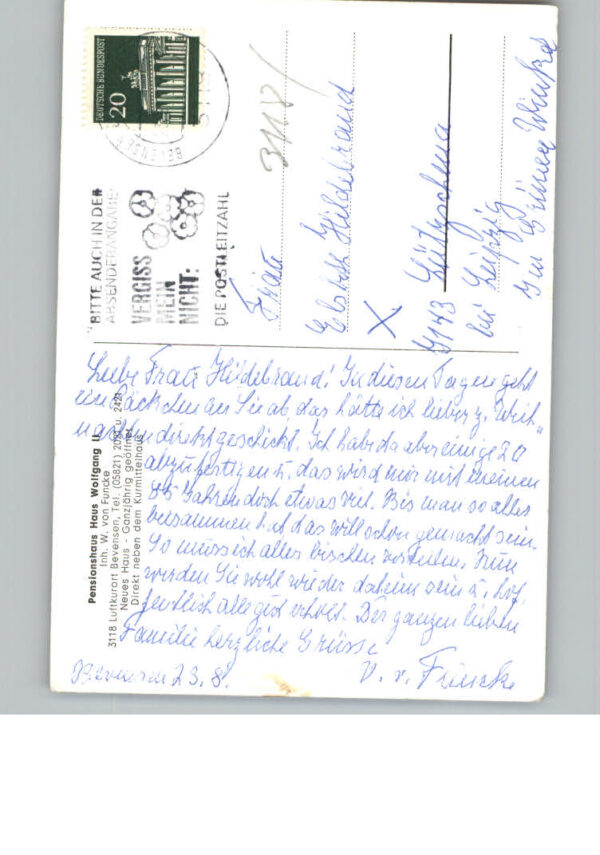 DEUTSCHE BUNDESPOST
20
BEVENSEN
3118
BITTE AUCH IN DER
ABSENDERANGABE:
VERGISS
MEIN
NICHT:
DIE POSTLEITZAHL
3118/
Frau
Elsbeth Hildebrand
X
7143 Lützschena
bei Leipzig
Im Grünen Winkel
Pensionshaus Haus Wolfgang II
Inh. W. von Funcke
3118 Luftkurort Bevensen, Tel. (05821) 2081 u. 2421
Neues Haus - Ganzjährig geöffnet
Direkt neben dem Kurmittelhaus
Liebe Frau Hildebrand! In diesen Tagen geht
ein Päckchen an Sie ab, das hätte ich lieber z. Weih-
nachten direkt geschickt. Ich habe da aber einige 20
abzufertigen u. das wird mir mit meinen
85 Jahren doch etwas viel. Bis man so alles
beisammen hat das will schon gemacht sein.
So muss ich alles bischen verteilen. Nun
werden Sie wohl wieder daheim sein u. hof-
fentlich alle gut erholt. Der ganzen lieben
Familie herzliche Grüsse
Bevensen 23.8.
V. v. Funcke